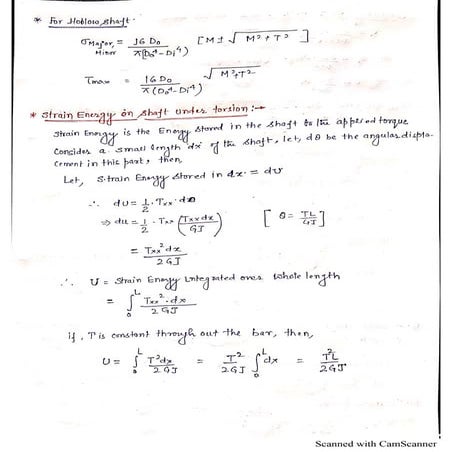 * For Hollow shaft.
σMajor, Minor = 16 D₀ / π(D₀⁴-Di⁴) [M ± √M²+T²]
Tmax = 16 D₀ / π(D₀⁴-Di⁴) √M²+T²
* Strain Energy on shaft under torsion:→
Strain Energy is the Energy stored in the shaft to the applied torque
Concides a small length dx of the shaft, let, dθ be the angular displa-
cement in this part, then,
Let, Strain Energy stored in dx = dU
∴ dU = 1/2 · Txx · dθ
⇒ dU = 1/2 · Txx (Txx dx / GJ) [θ = TL/GJ]
= Txx² dx / 2GJ
∴ U = Strain Energy integrated over whole length
= ∫₀ᴸ Txx² · dx / 2GJ
if, T is constant through out the bar, then,
U = ∫₀ᴸ T² dx / 2GJ = T² / 2GJ ∫₀ᴸ dx = T²L / 2GJ
Scanned with CamScanner